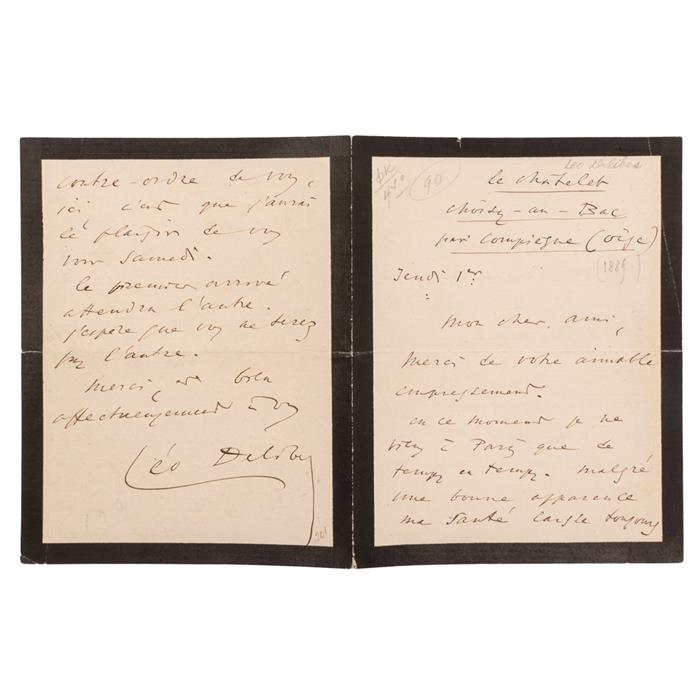 Léo Delibes
le châtelet
choisy-au-Bac
par Compiègne (oise)
(1889)
90
Jeudi 1er
Mon cher ami,
Merci de votre aimable
empressement.
en ce moment je ne
viens à Paris que de
temps en temps. malgré
une bonne apparence
ma santé laisse toujours
contre-ordre de vous,
ici, c'est que j'aurai
le plaisir de vous
voir Samedi.
le premier arrivé
attendra l'autre.
j'espère que vous ne serez
pas l'autre.
Merci, et bien
affectueusement à vous
Léo Delibes